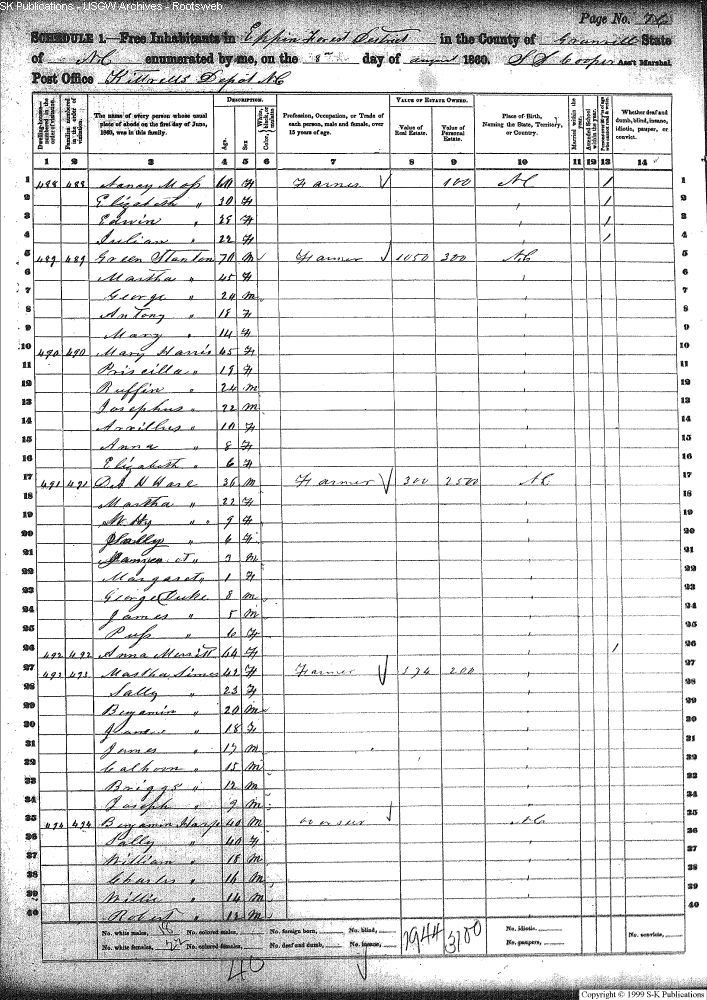 SK Publications - USGW Archives - Rootsweb
Page No.
SCHEDULE 1.—Free Inhabitants in Eppin Forest District in the County of Granvill State
of NC enumerated by me, on the 8 day of august 1860. S S Cooper Ass't Marshal
Post Office Kittrells Depot NC
DESCRIPTION. VALUE OF ESTATE OWNED.
Dwelling-houses—numbered in the order of visitation. Families numbered in the order of visitation. The name of every person whose usual place of abode on the first day of June, 1860, was in this family. Age. Sex. Profession, Occupation, or Trade of each person, male and female, over 15 years of age. Value of Real Estate. Value of Personal Estate. Place of Birth, Naming the State, Territory, or Country. Married within the year. Attended School within the year. Whether deaf and dumb, blind, insane, idiotic, pauper, or convict.
1 2 3 4 5 6 7 8 9 10 11 12 13 14
1 488 488 Nancy Moss 60 F Farmer 100 NC / 1
2 Elizabeth " 30 F / 2
3 Edwin " 25 F / 3
4 Julian " 22 F / 4
5 489 489 Green Stanton 70 M Farmer 1050 300 NC 5
6 Martha " 45 F 6
7 George " 20 M 7
8 Antony " 18 F 8
9 Mary " 14 F 9
10 490 490 Mary Harris 45 F 10
11 Priscilla " 19 F 11
12 Ruffin " 24 M 12
13 Josephus " 22 M 13
14 Arvillus " 10 F 14
15 Anna " 8 F 15
16 Elizabeth " 6 F 16
17 491 491 D H Hare 36 M Farmer 300 2500 NC 17
18 Martha " 22 F 18
19 " 9 F 19
20 Sally " 6 F 20
21 " 3 M 21
22 Margaret " 1 F 22
23 George Duke 8 M 23
24 James " 5 M 24
25 Puss " 6 F 25
26 492 492 Anna Merritt 64 F / 26
27 493 493 Martha Simes 42 F Farmer 174 200 27
28 Sally " 23 F 28
29 Benjamin " 20 M 29
30 " 18 F 30
31 James " 17 M 31
32 Calhoon " 15 M 32
33 Briggs " 12 M 33
34 Joseph " 9 M 34
35 494 494 Benjamin Harp 40 M overseer NC 35
36 Sally " 40 F 36
37 William " 18 M 37
38 Charles " 16 M 38
39 Willie " 14 M 39
40 Robert " 12 M 40
No. white males, 18 No. colored males, No. foreign born, No. blind, 1944 3100 No. idiotic, No. convicts,
No. white females, 22 No. colored females, No. deaf and dumb, No. insane, No. paupers,
40
Copyright © 1999 S-K Publications